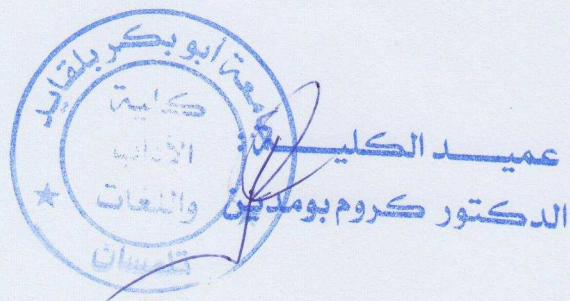 جامعة أبو بكر بلقايد
كلية
الآداب
واللغات
تلمسان
عميـــد الكليـــة:
الدكتور كروم بومدين